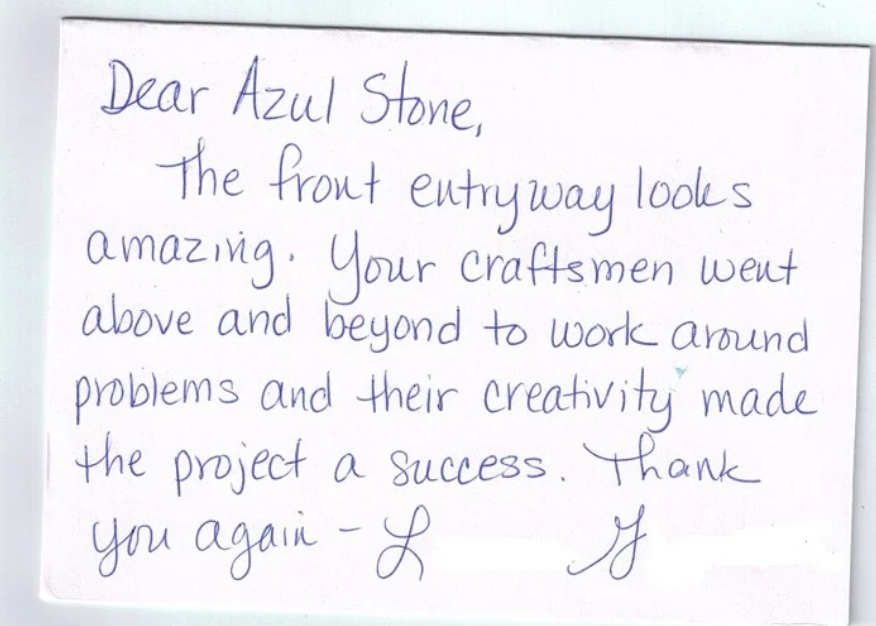 Dear Azul Stone,
The front entryway looks
amazing. Your craftsmen went
above and beyond to work around
problems and their creativity made
the project a success. Thank
you again - L